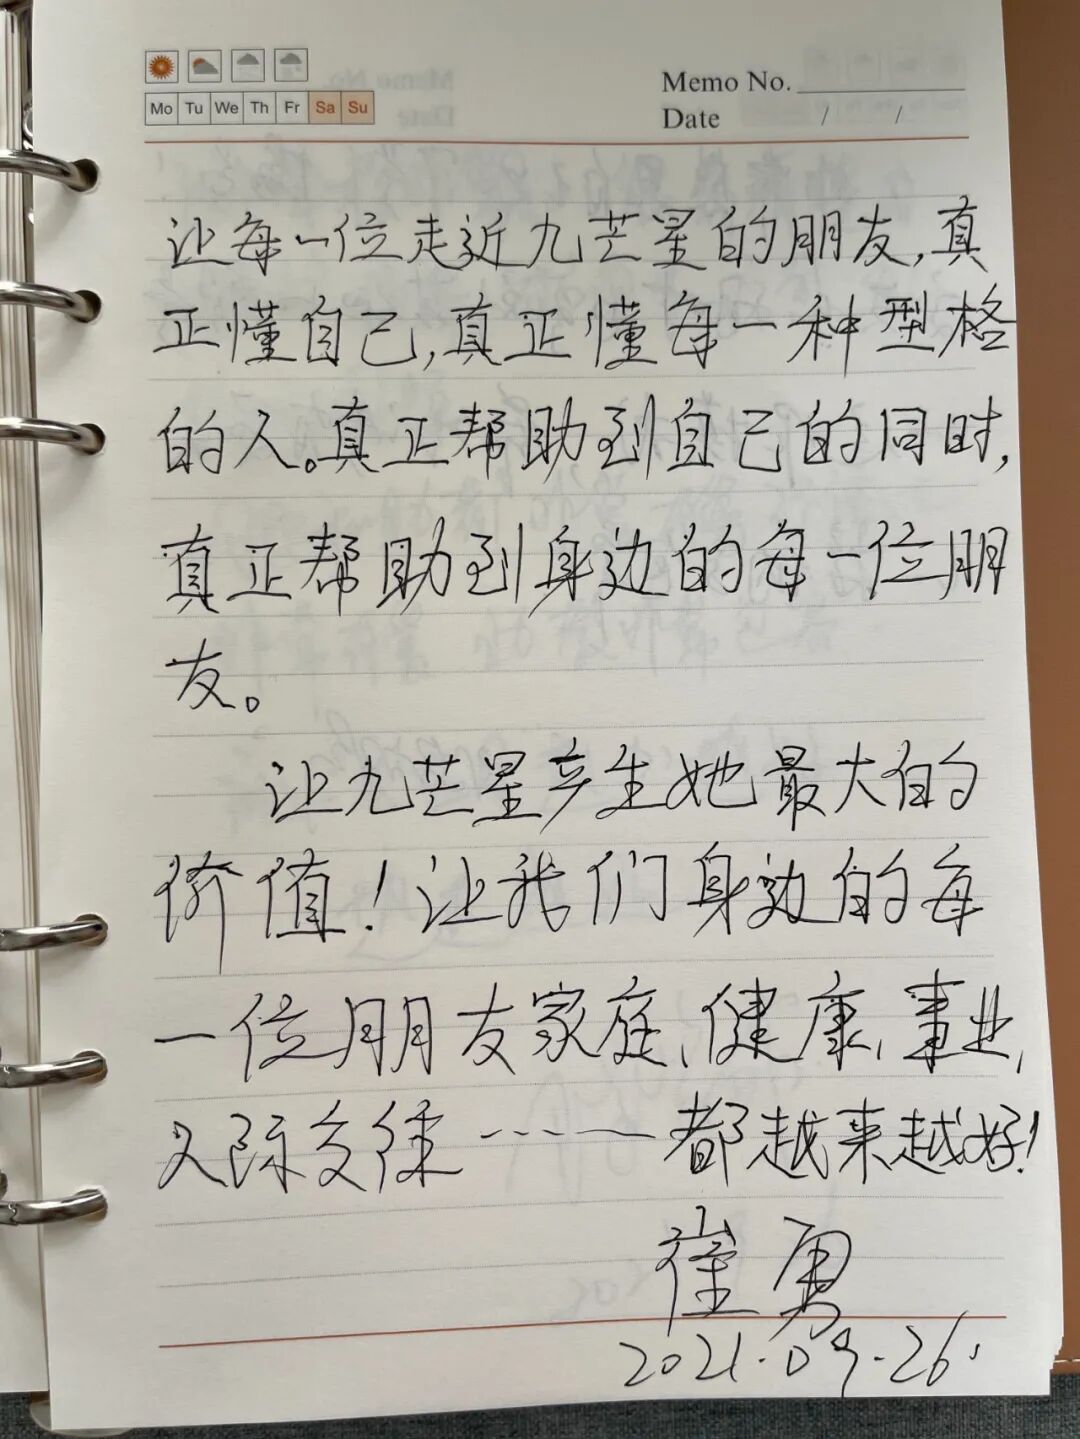 Memo No.
Mo Tu We Th Fr Sa Su
Date / /
让每一位走近九芒星的朋友,真
正懂自己,真正懂每一种型格
的人。真正帮助到自己的同时,
真正帮助到身边的每一位朋
友。
让九芒星产生她最大的
价值!让我们身边的每
一位朋友家庭、健康、事业、
人际交往……都越来越好!
崔勇
2021.09.26.